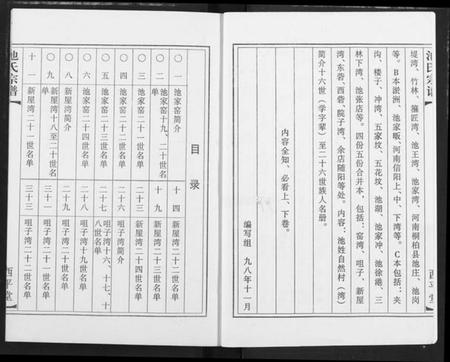 堤湾、竹林、箍匠湾、池王湾、池家湾、河南桐柏县池庄、池岗
等。B本淤洲、池家畈、河南信阳上、中、下湾等。C本包括：夹
沟、楼子、冲湾、五家坟、五花坟、池湖、池家冲、池徐港、三
林下湾、池张店等。四份五份合并本，包括：窑湾、咀子、新屋
湾、东砦、西砦、院子湾、余店随阳等处。内容：池姓自然村（湾）
简介十六世（学字辈）至二十六世族人名册。
内容全知，必看上、下卷。
编写组 九八年十一月
池氏宗谱
西平堂
目录
〇一 池家窑简介
〇二 池家窑十九、二十世名单
〇三 池家窑二十一世名单
〇四 池家窑二十二世名单
〇五 池家窑二十三世名单
〇六 池家窑二十四世名单
〇八 新屋湾简介
〇九 新屋湾十八至二十世名单
十一 新屋湾二十一世名单
十四 新屋湾二十二世名单
十九 新屋湾二十三世名单
二十三 新屋湾二十四世名单
二十六 咀子湾简介
二十七 咀子湾十六、十七、十八世名单
二十八 咀子湾十九世名单
二十九 咀子湾二十世名单
三十一 咀子湾二十一世名单
三十三 咀子湾二十二世名单
池氏宗谱
西平堂